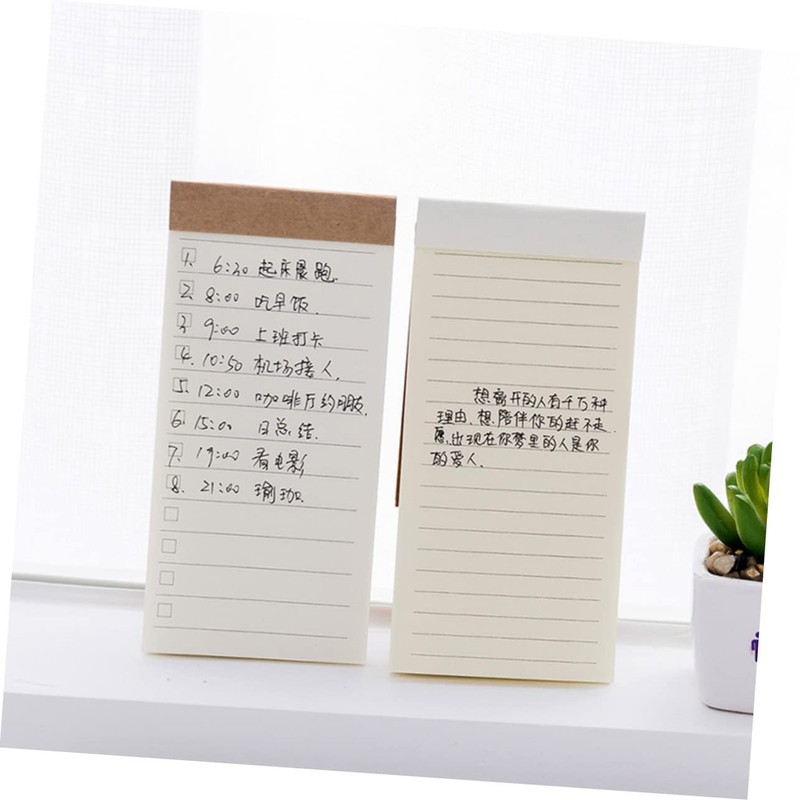 1. 6:30 起床晨跑.
2. 8:00 吃早饭.
3. 9:00 上班打卡
4. 10:50 机场接人.
5. 12:00 咖啡厅约朋友.
6. 15:00 日总结.
7. 19:00 看电影
8. 21:00 瑜珈.
想离开的人有千万种
理由.想陪伴你的赶不走.
出现在你梦里的人是你
的爱人.